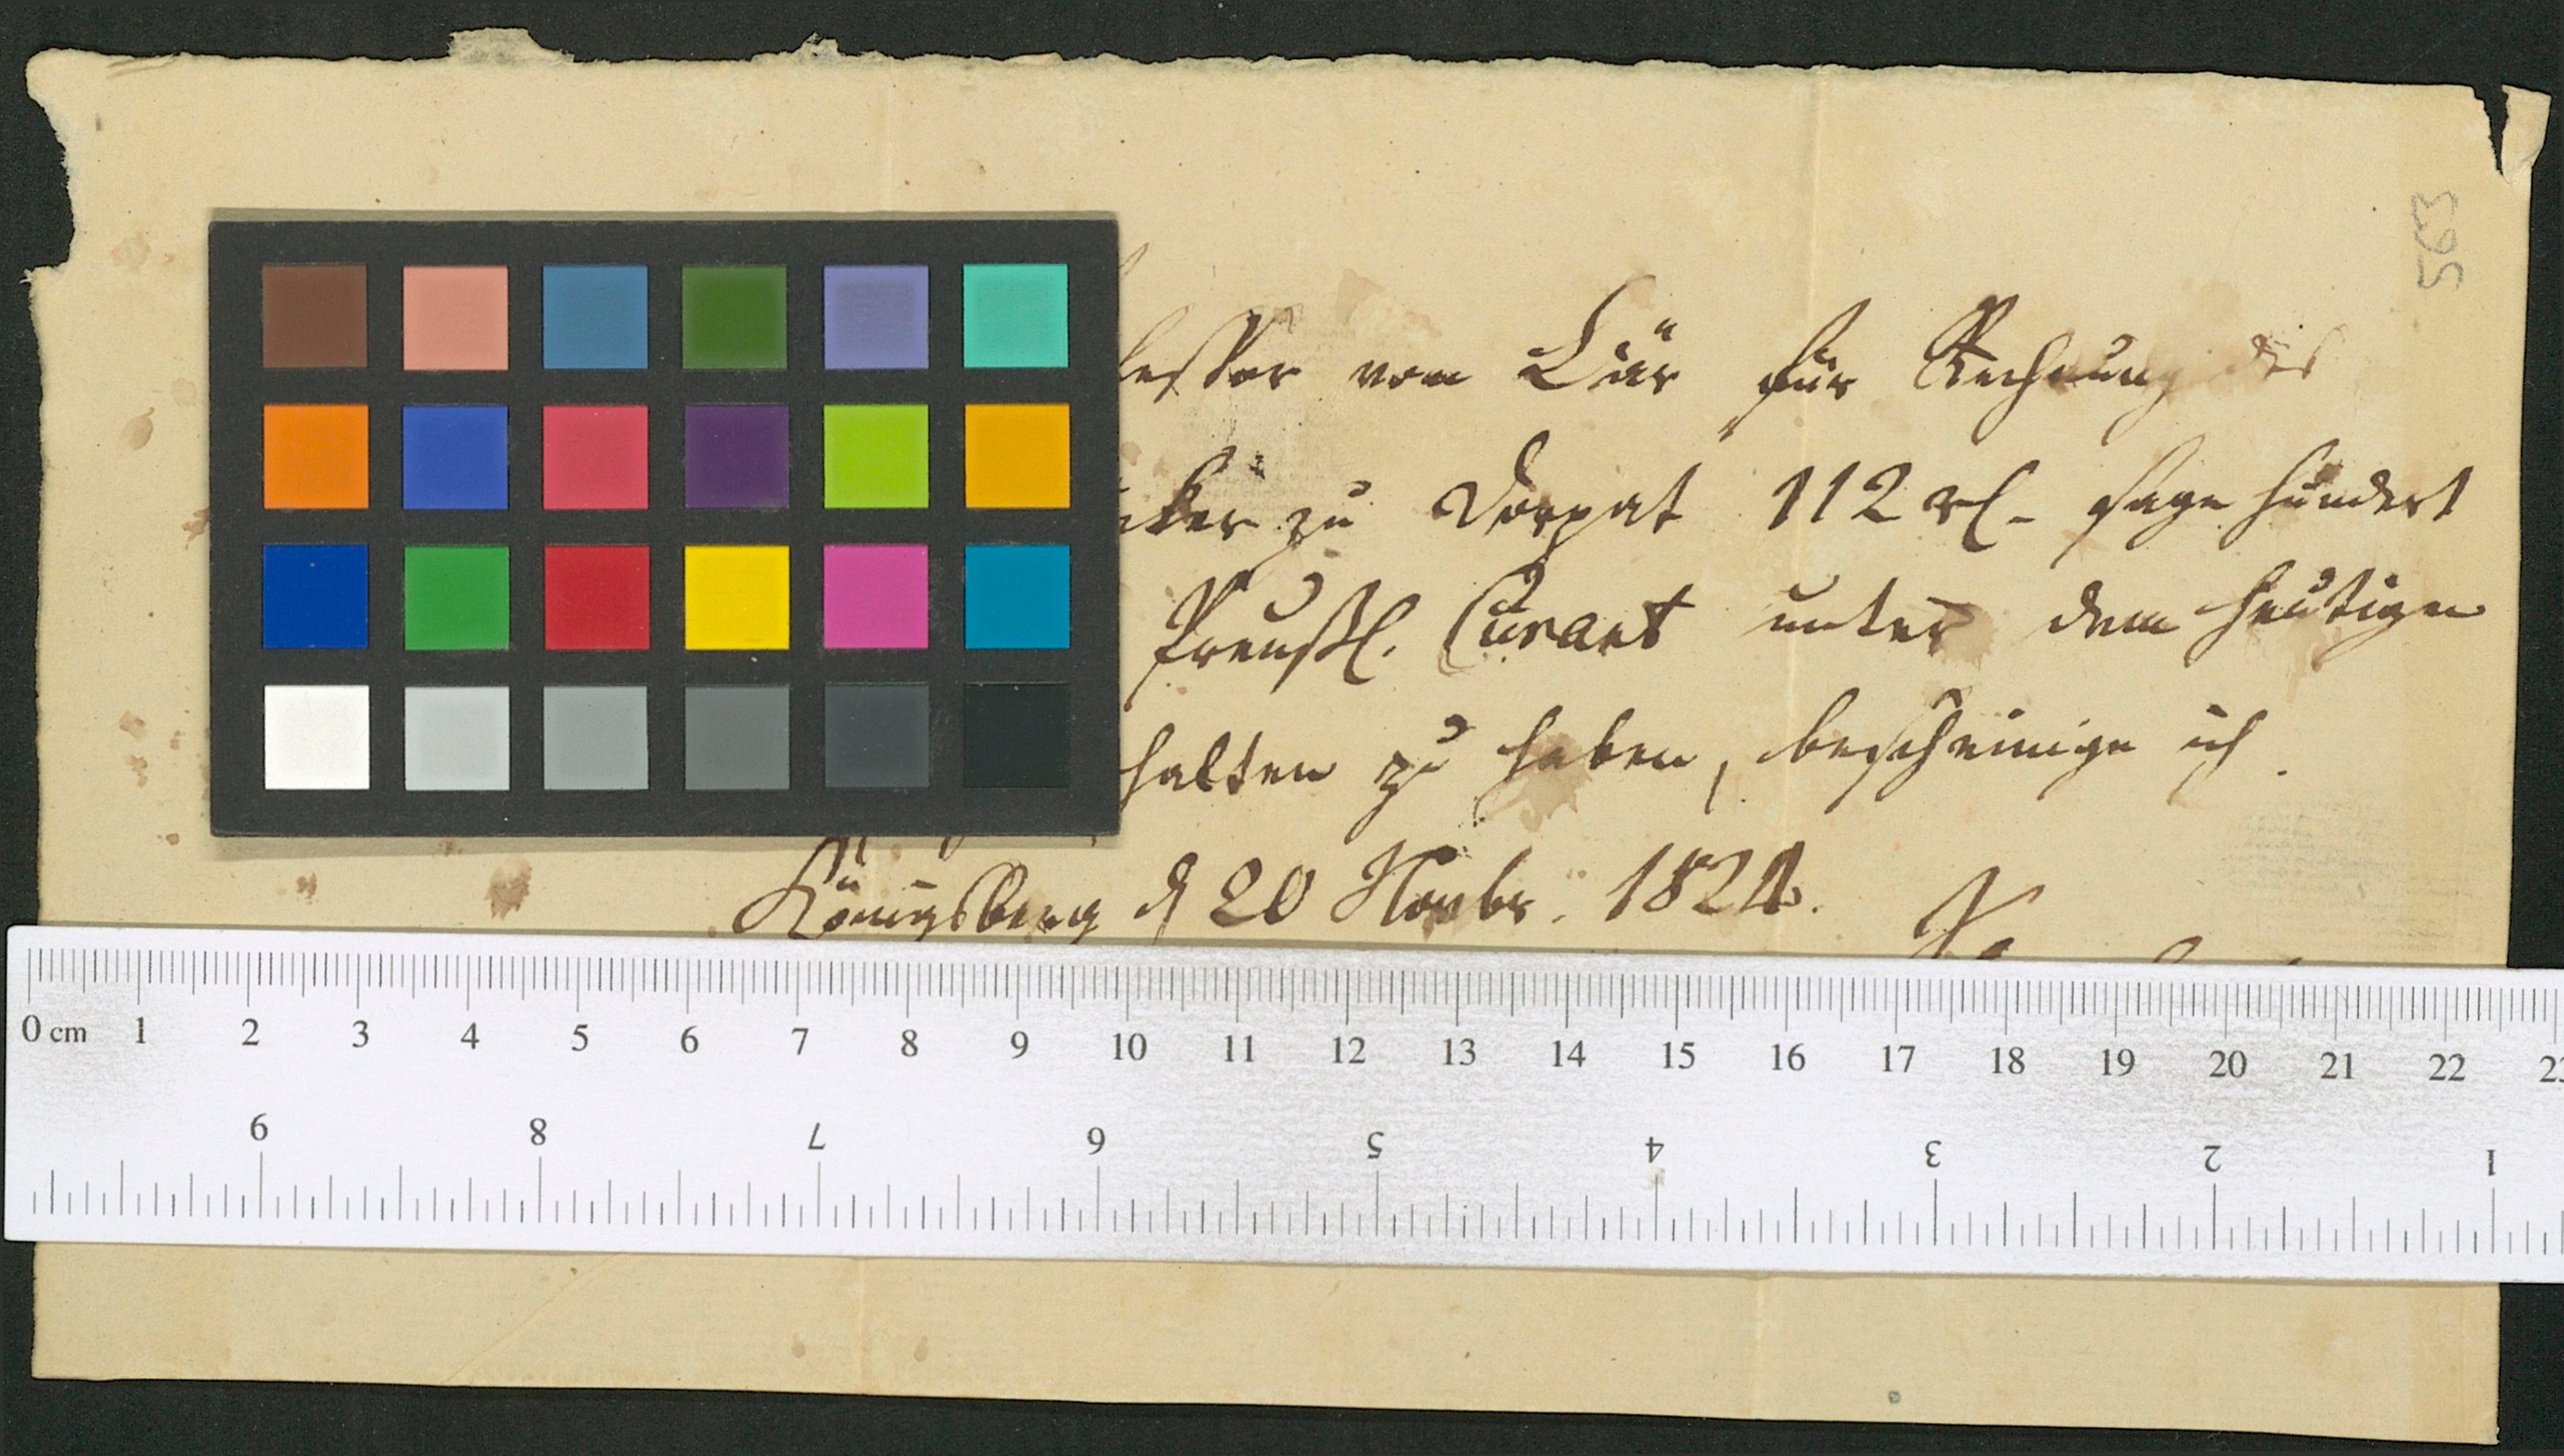 563
fessor von Bär für Rechnung des
cker zu Dorpat 112 rl. sage hundert
Preußl. Curant unter dem heutigen
halten zu haben, bescheinige ich
Königsberg d 20 Novbr. 1821.
0 cm 1 2 3 4 5 6 7 8 9 10 11 12 13 14 15 16 17 18 19 20 21 22 23
9 8 7 6 5 4 3 2 1